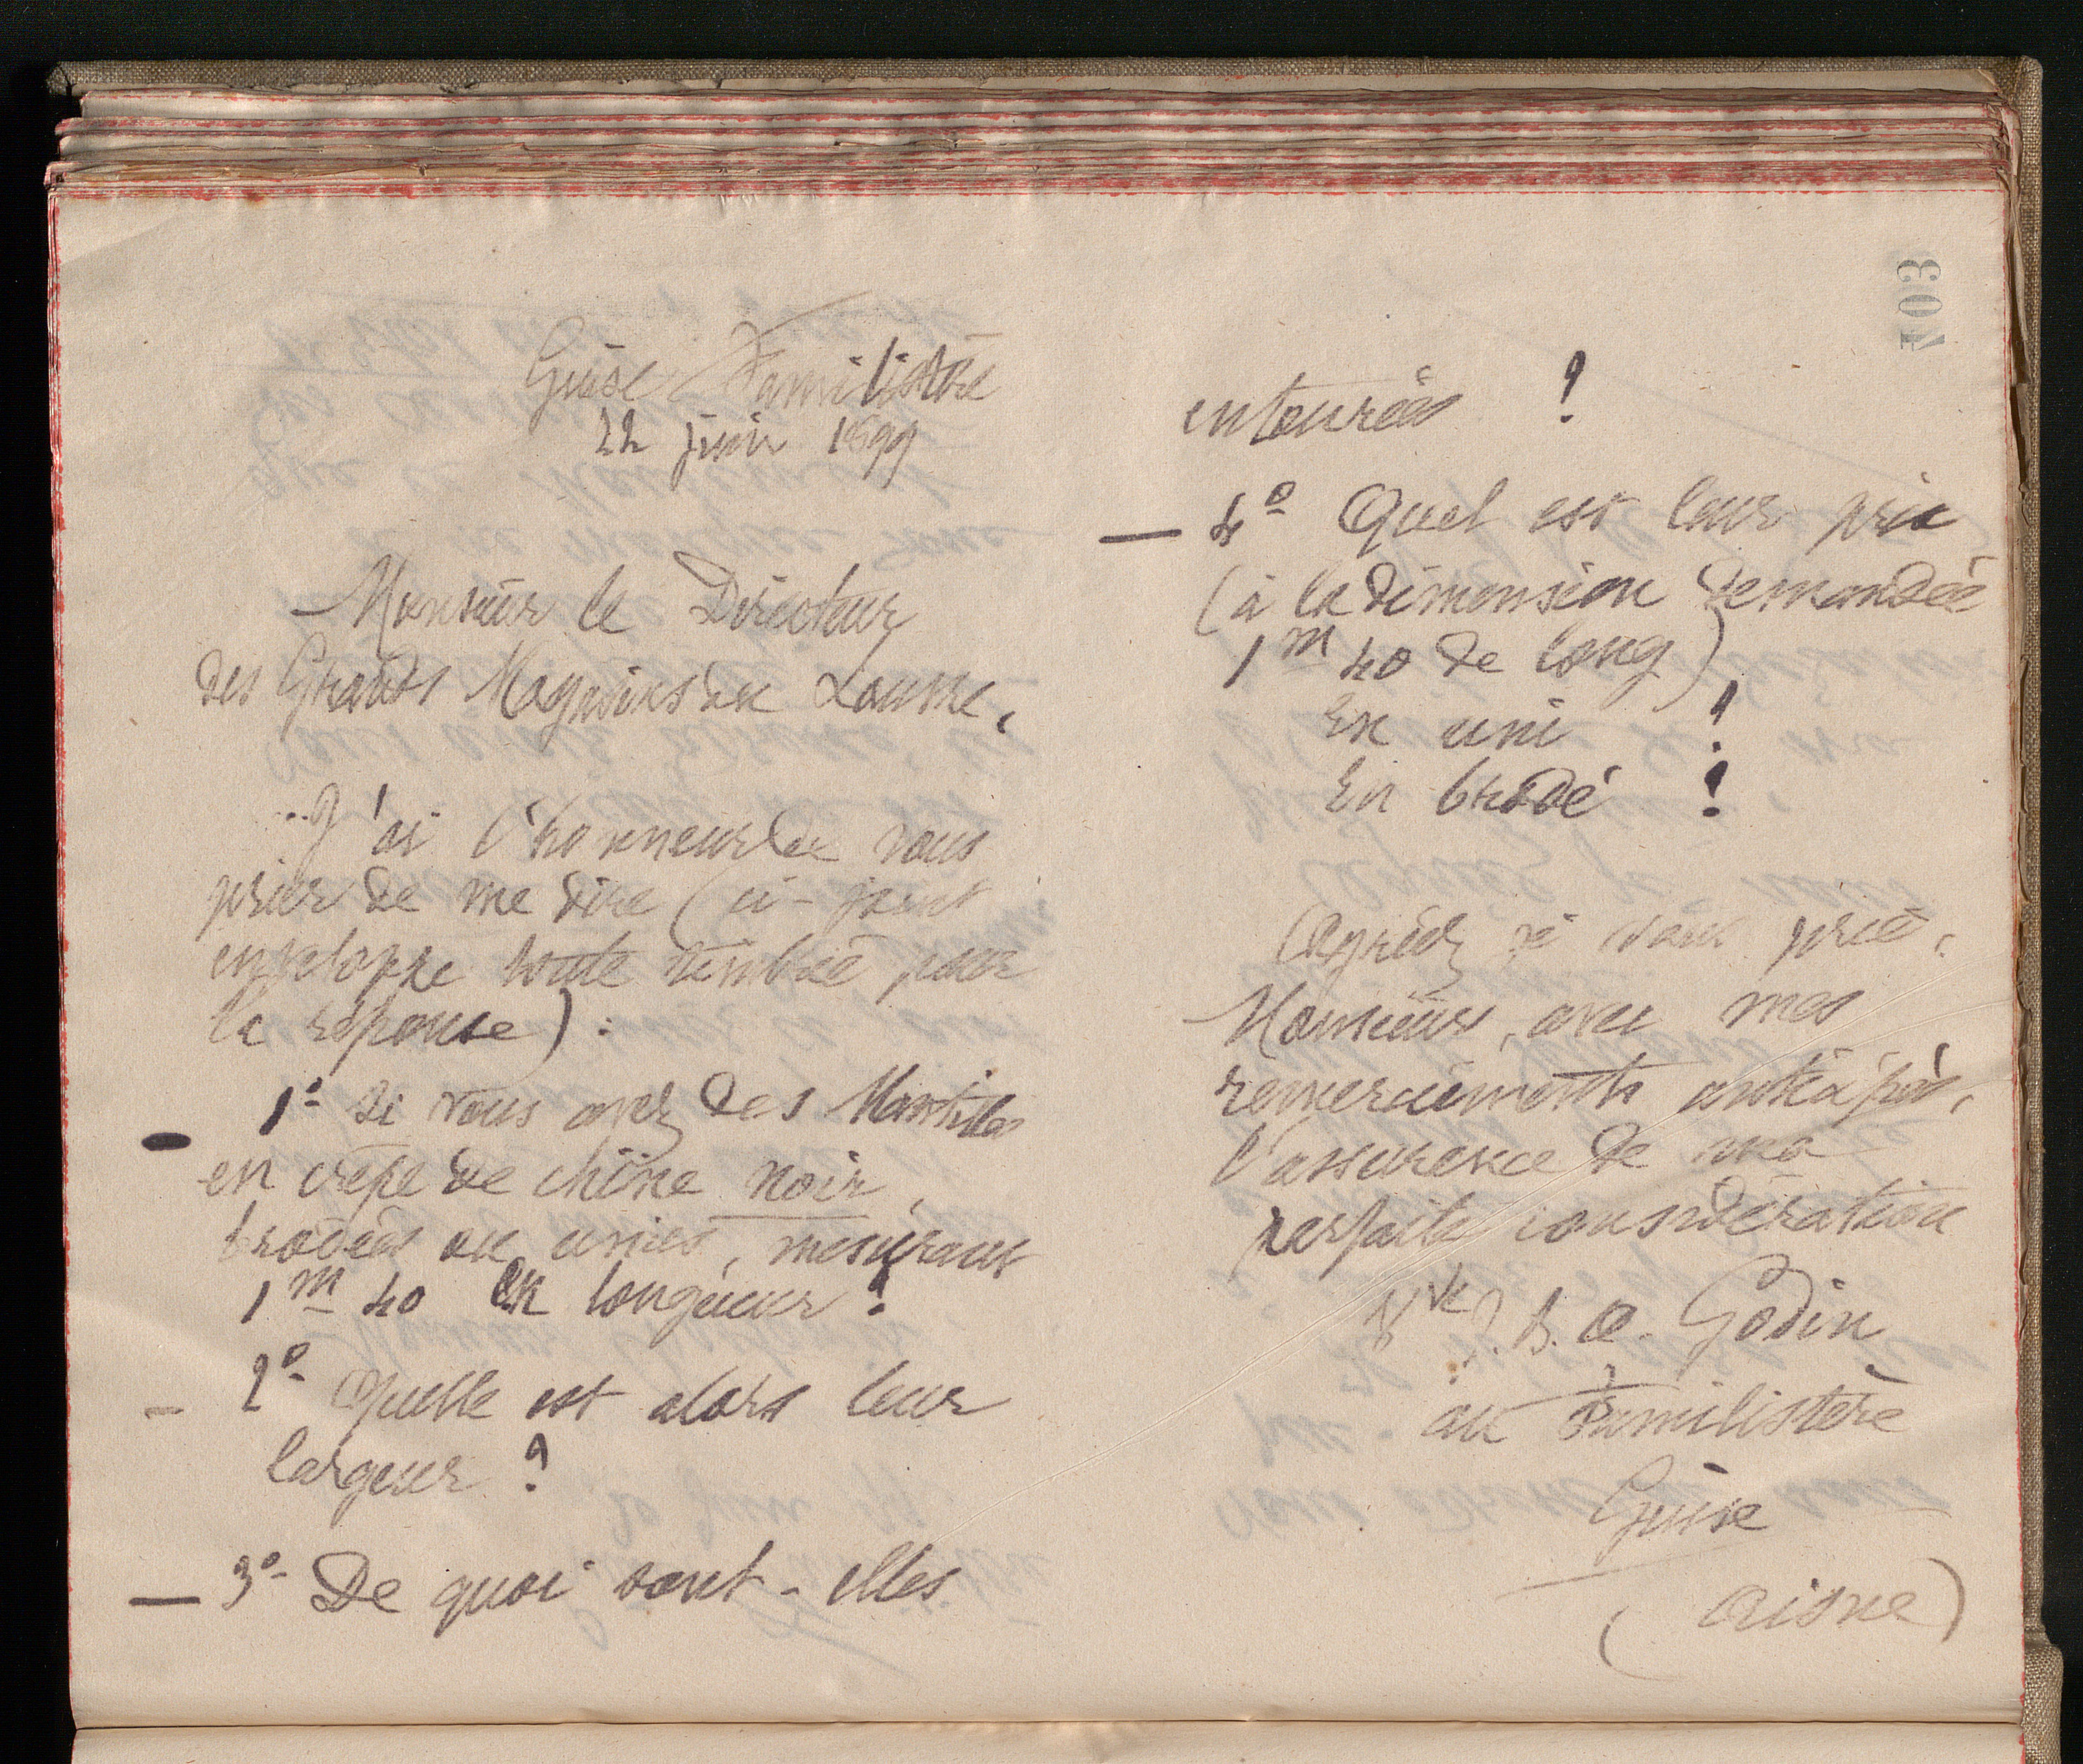 Guise Familistère
22 juin 1899
Monsieur le Directeur
des Grands Magasins du Louvre,
J'ai l'honneur de vous
prier de me dire (ci-joint
enveloppe toute timbrée pour
la réponse) :
1º si vous avez des Mantilles
en crêpe de chine noir,
brodées ou unies, mesurant
1m 40 en longueur ?
— 2º Quelle est alors leur
largeur ?
— 3º De quoi sont-elles
703
entourées ?
— 4º Quel est leur prix
(à la dimension demandée
1m 40 de long)
En uni ?
En brodé ?
Agréez je vous prie,
Monsieur, avec mes
remerciements anticipés,
l'assurance de ma
parfaite considération
Vve J. B. A. Godin
au Familistère
Guise
(Aisne)